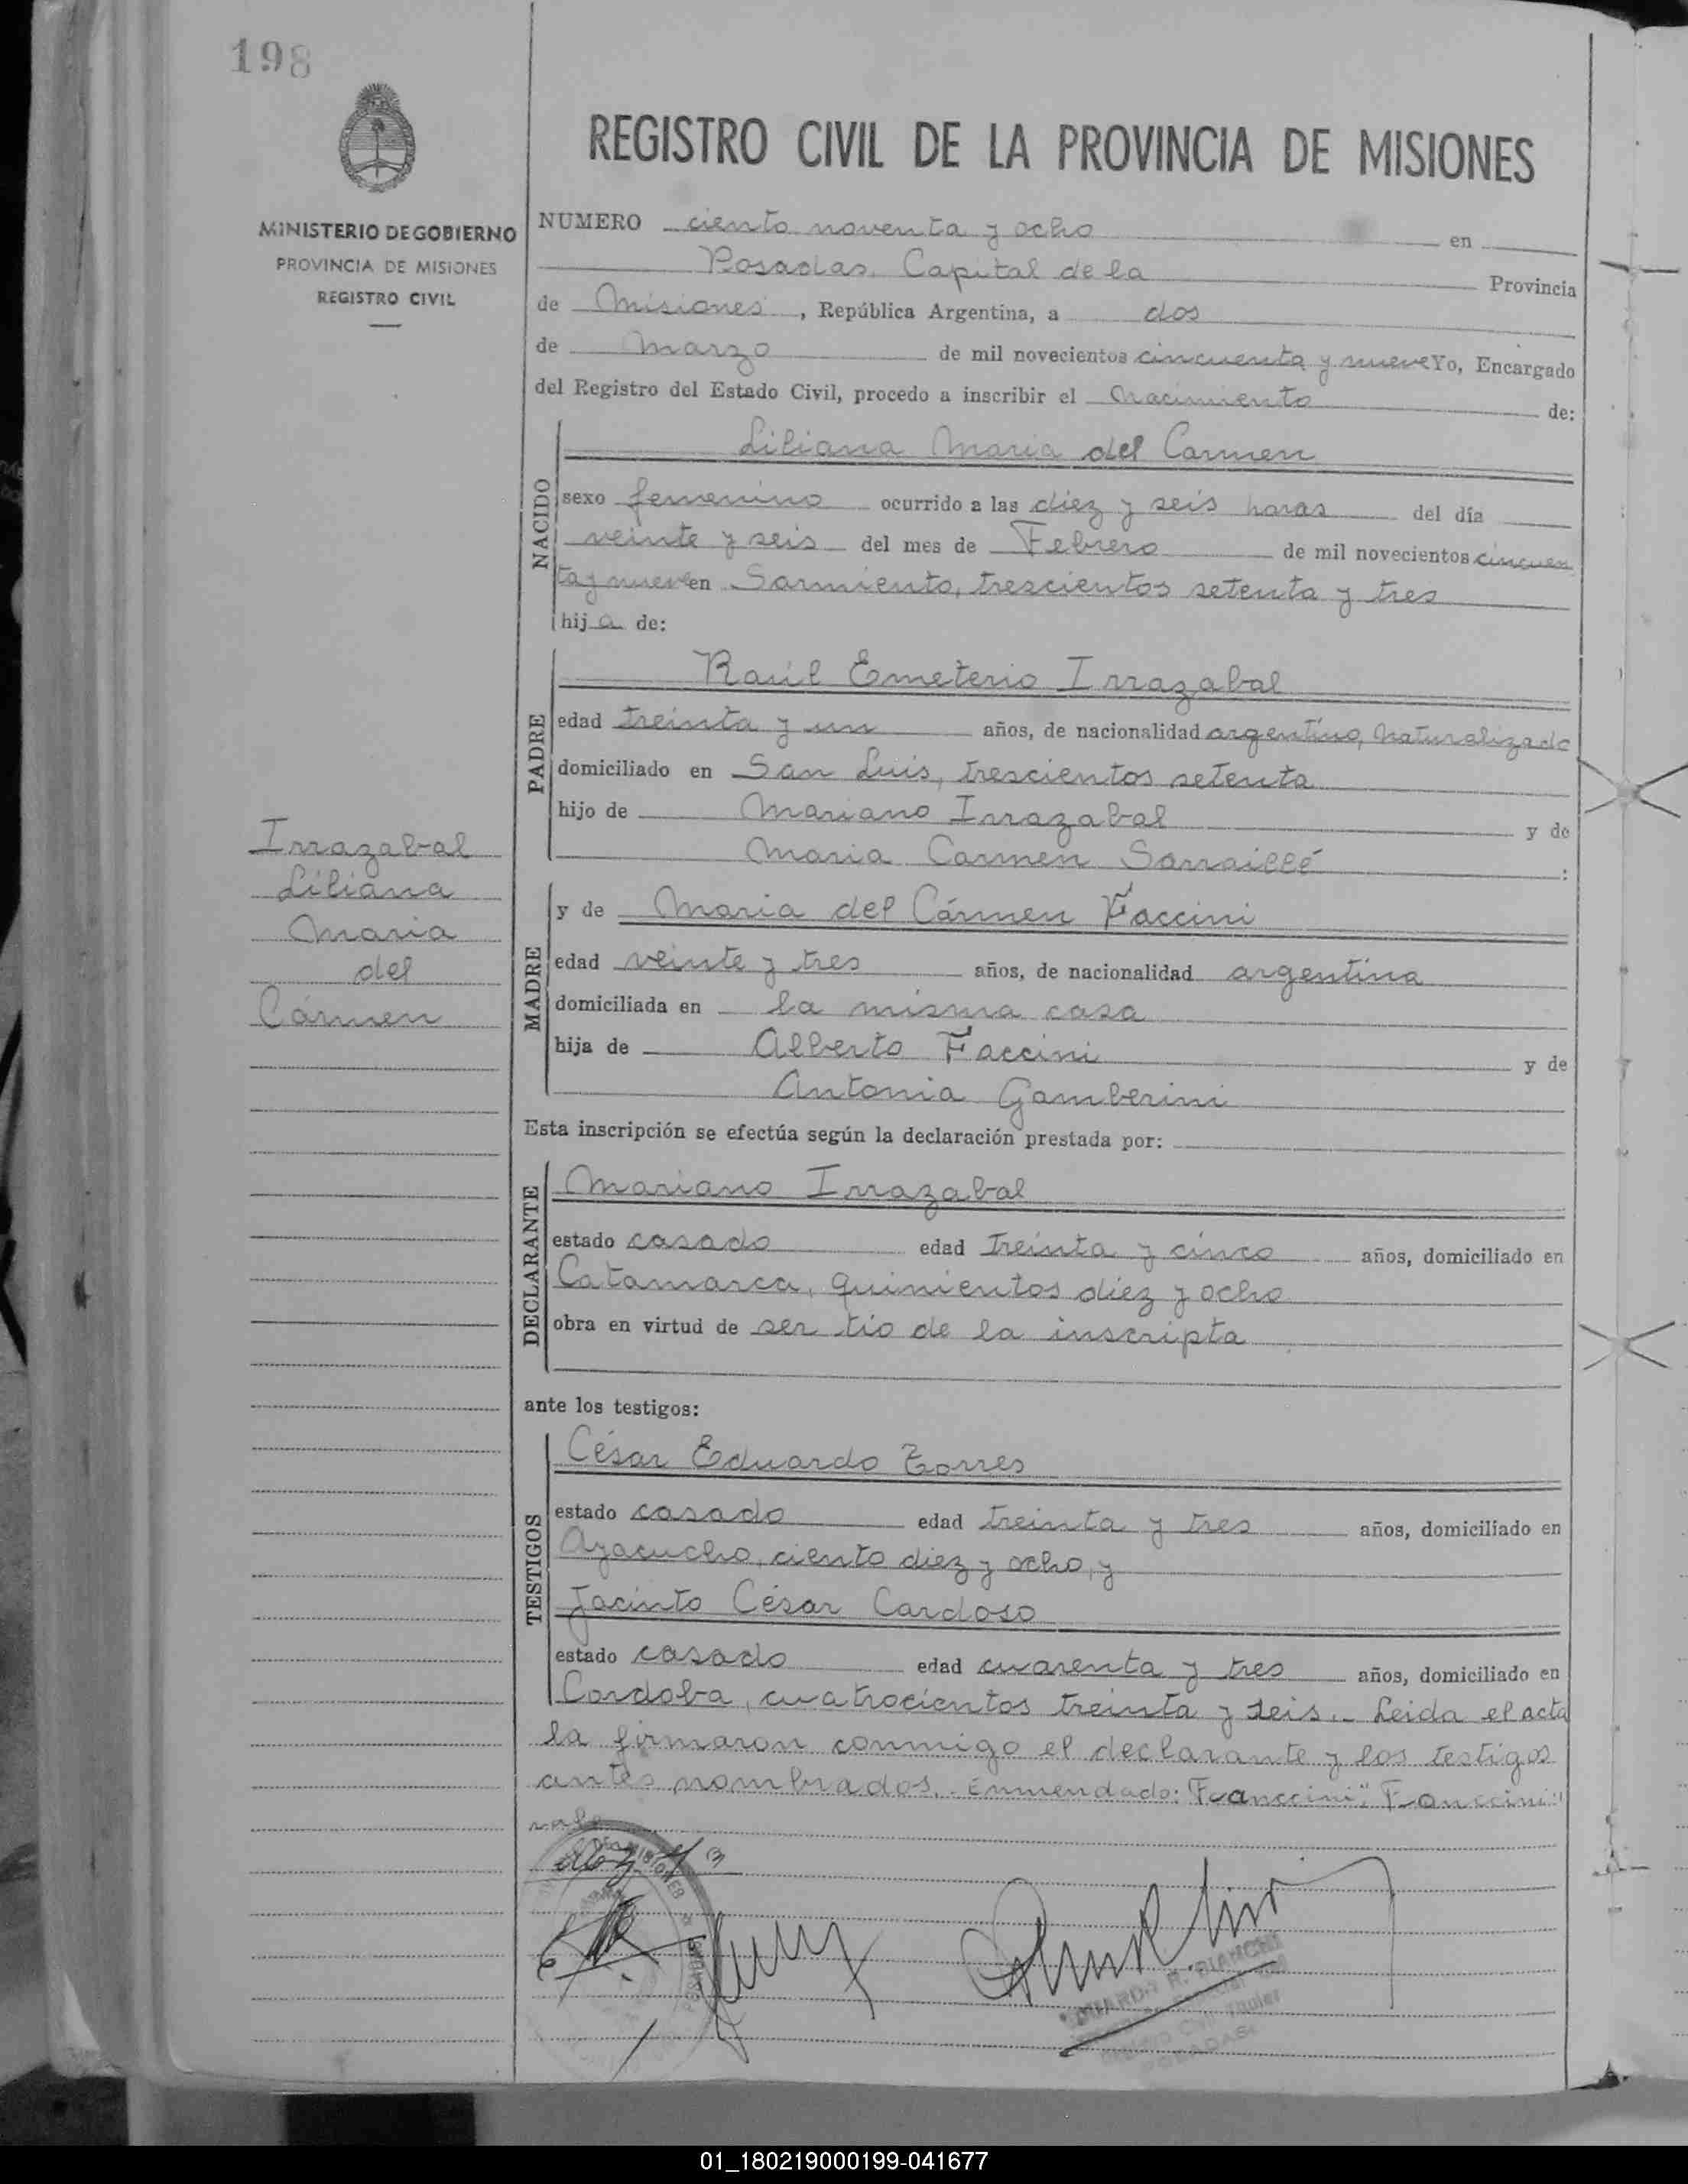 198
REGISTRO CIVIL DE LA PROVINCIA DE MISIONES
MINISTERIO DE GOBIERNO
PROVINCIA DE MISIONES
REGISTRO CIVIL
NUMERO ciento noventa y ocho en
Posadas, Capital de la Provincia
de Misiones, República Argentina, a dos
de Marzo de mil novecientos cincuenta y nueve Yo, Encargado
del Registro del Estado Civil, procedo a inscribir el Nacimiento de:
NACIDO
Liliana Maria del Carmen
sexo femenino ocurrido a las diez y seis horas del día
veinte y seis del mes de Febrero de mil novecientos cincuen
ta y nueve en Sarmiento, trescientos setenta y tres
hija de:
PADRE
Raúl Emeterio Irrazabal
edad treinta y un años, de nacionalidad argentino, naturalizado
domiciliado en San Luis, trescientos setenta
hijo de Mariano Irrazabal y de
Maria Carmen Sarraillé :
Irrazabal
Liliana
Maria
del
Cármen
MADRE
y de Maria del Cármen Faccini
edad veinte y tres años, de nacionalidad argentina
domiciliada en la misma casa
hija de Alberto Faccini y de
Antonia Gamberini
Esta inscripción se efectúa según la declaración prestada por:
DECLARANTE
Mariano Irrazabal
estado casado edad treinta y cinco años, domiciliado en
Catamarca, quinientos diez y ocho
obra en virtud de ser tio de la inscripta
ante los testigos:
TESTIGOS
César Eduardo Torres
estado casado edad treinta y tres años, domiciliado en
Ayacucho, ciento diez y ocho, y
Jacinto César Cardoso
estado casado edad cuarenta y tres años, domiciliado en
Cordoba, cuatrocientos treinta y seis.- Leida el acta
la firmaron conmigo el declarante y los testigos
antes nombrados.- Enmendado:
vale
POSADAS
01_180219000199-041677